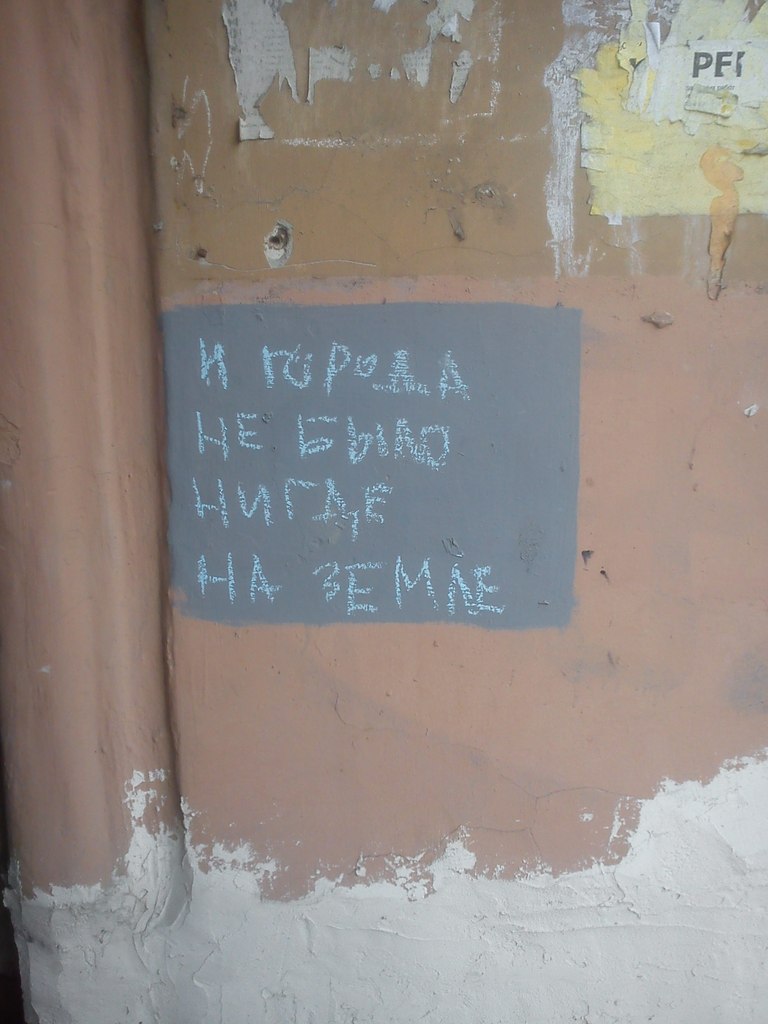 И ГОРОДА
НЕ БЫЛО
НИГДЕ
НА ЗЕМЛЕ